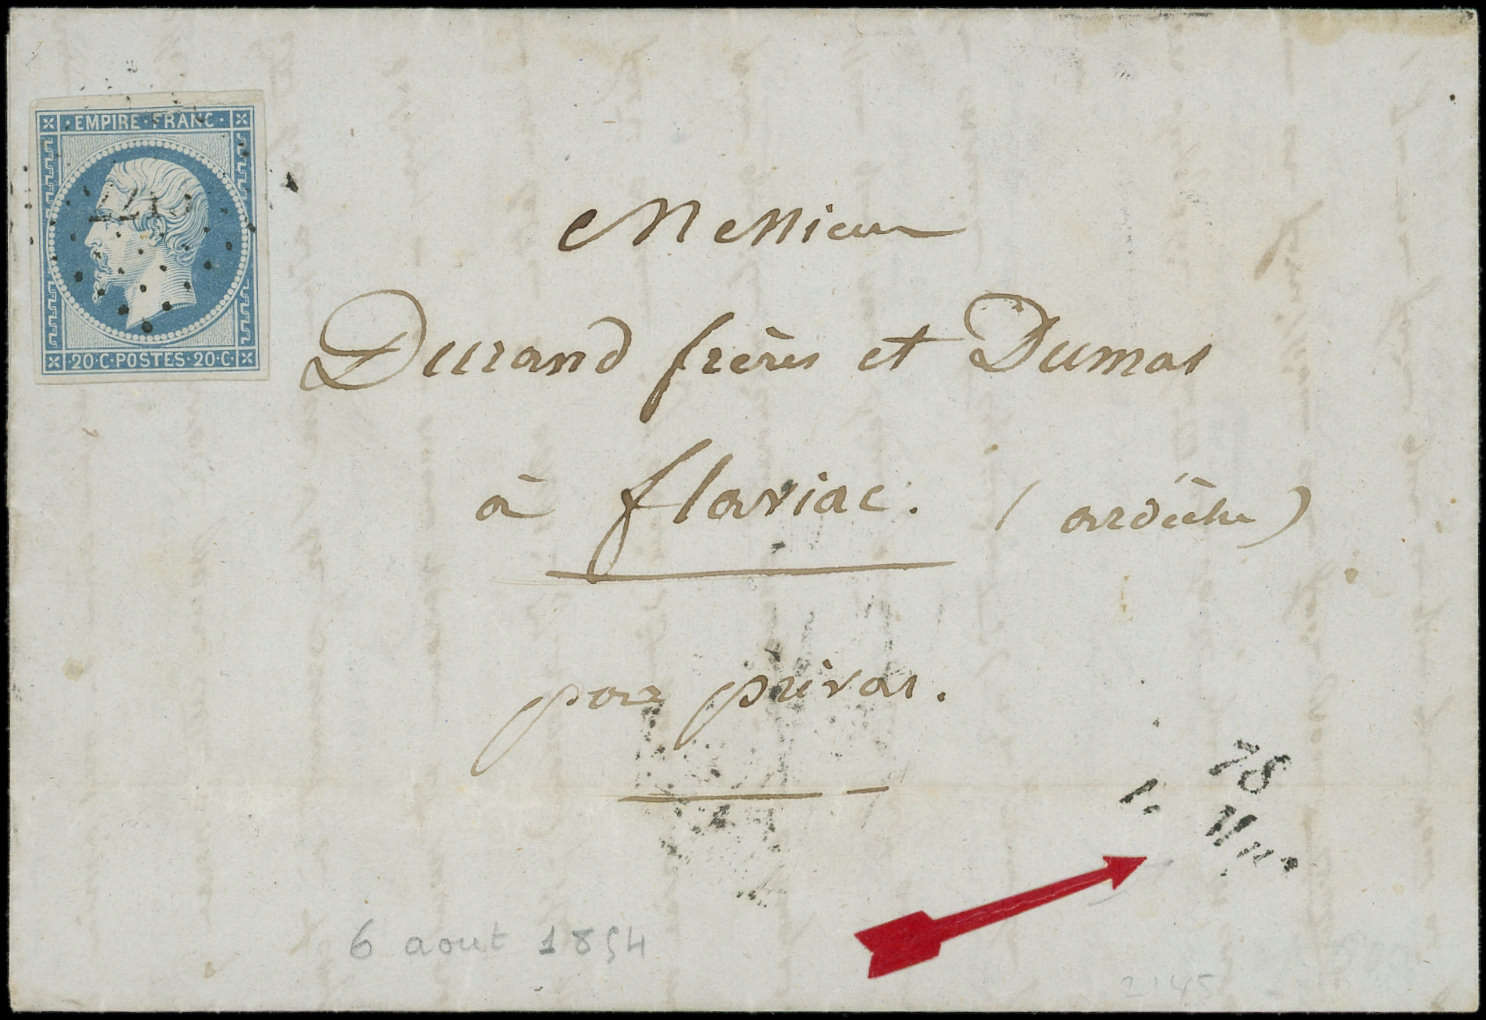 EMPIRE·FRANC·
20·C·POSTES·20·C·
Messieurs
Durand frères et Dumas
à flaviac. (ardèche)
par privas.
78
6 aout 1854
2145